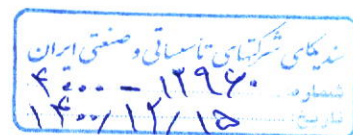 سندیکای شرکتهای تأسیساتی و صنعتی ایران
شماره: ۴۰۰۰ - ۱۳۹۶۰
تاریخ: ۱۴۰۰/۱۲/۱۵